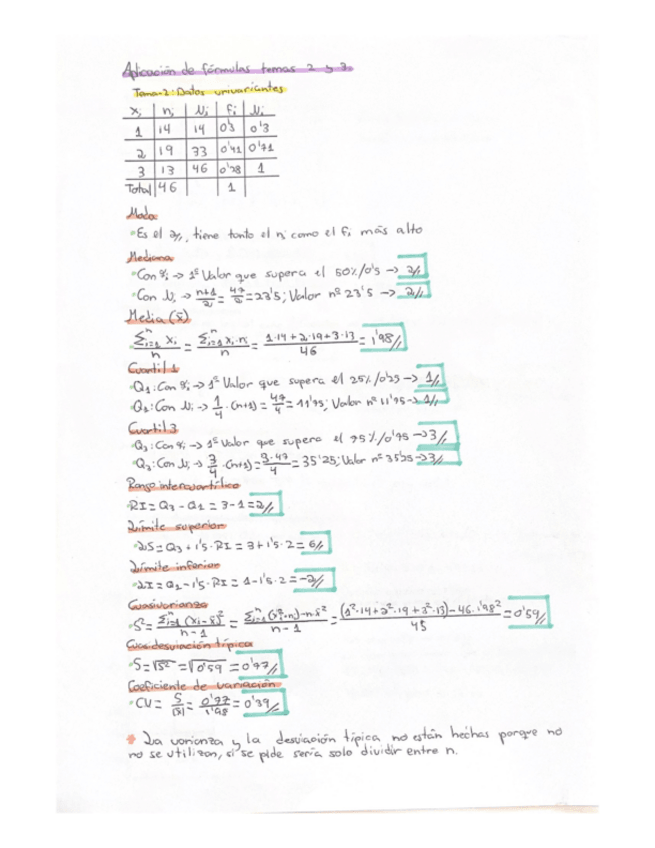 Aplicación de fórmulas temas 2 y 3
Tema-2: Datos univariantes
xi ni Ni fi Ni
1 14 14 0'3 0'3
2 19 33 0'41 0'71
3 13 46 0'28 1
Total 46 1
Moda
•Es el 2//, tiene tanto el ni como el fi más alto
Mediana
•Con %i -> 1er Valor que supera el 50%/0'5 -> 2//
•Con Ni -> n+1/2 = 47/2 = 23'5; Valor nº 23'5 -> 2//
Media (x̄)
•∑ⁿᵢ₌₁ xi/n = ∑ⁿᵢ₌₁ xi·ni/n = 1·14+2·19+3·13/46 = 1'98//
Cuartil 1
•Q1: Con %i -> 1er Valor que supera el 25%/0'25 -> 1//
•Q1: Con Ni -> 1/4·(n+1) = 47/4 = 11'75; Valor nº 11'75 -> 1//
Cuartil 3
•Q3: Con %i -> 1er Valor que supera el 75%/0'75 -> 3//
•Q3: Con Ni -> 3/4·(n+1) = 3·47/4 = 35'25; Valor nº 35'25 -> 3//
Rango intercuartílico
•RI = Q3 - Q1 = 3-1 = 2//
Límite superior
•LS = Q3 + 1'5·RI = 3+1'5·2 = 6//
Límite inferior
•LI = Q1 - 1'5·RI = 1-1'5·2 = -2//
Cuasivarianza
•S² = ∑ⁿᵢ₌₁(xi-x̄)²/n-1 = ∑ⁿᵢ₌₁(xi²·ni)-n·x̄²/n-1 = (1²·14+2²·19+3²·13)-46·1'98²/45 = 0'59//
Cuasidesviación típica
•S = √S² = √0'59 = 0'77//
Coeficiente de variación
•CV = S/|x̄| = 0'77/1'98 = 0'39//
* La varianza y la desviación típica no están hechas porque no
no se utilizan, si se pide sería solo dividir entre n.